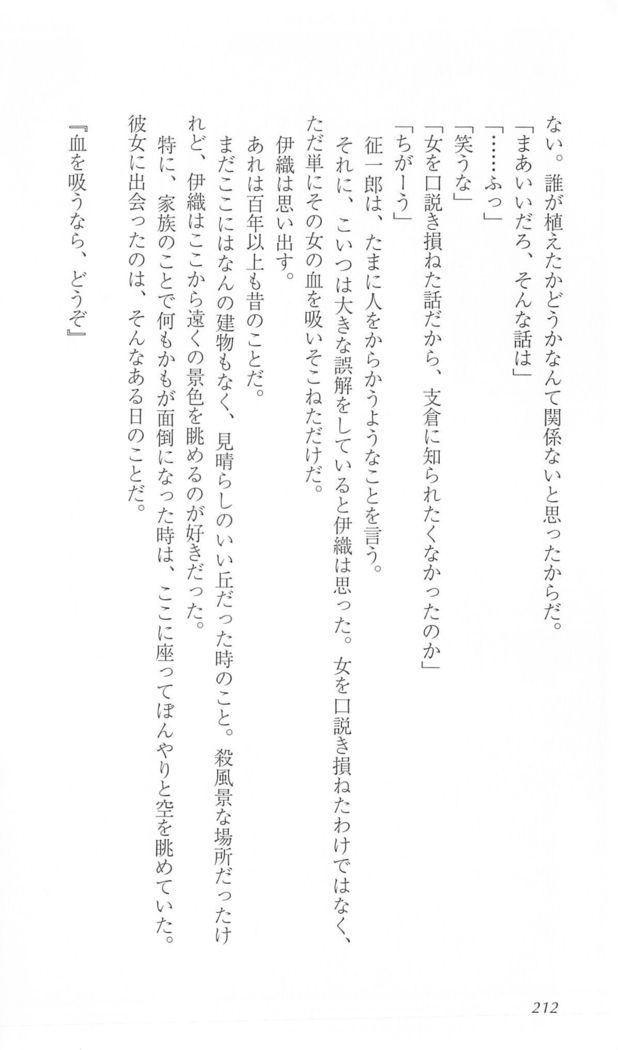 ない。誰が植えたかどうかなんて関係ないと思ったからだ。
「まあいいだろ、そんな話は」
「……ふっ」
「笑うな」
「女を口説き損ねた話だから、支倉に知られたくなかったのか」
「ちがーう」
征一郎は、たまに人をからかうようなことを言う。
それに、こいつは大きな誤解をしていると伊織は思った。女を口説き損ねたわけではなく、
ただ単にその女の血を吸いそこねただけだ。
伊織は思い出す。
あれは百年以上も昔のことだ。
まだここにはなんの建物もなく、見晴らしのいい丘だった時のこと。殺風景な場所だったけ
れど、伊織はここから遠くの景色を眺めるのが好きだった。
特に、家族のことで何もかもが面倒になった時は、ここに座ってぼんやりと空を眺めていた。
彼女に出会ったのは、そんなある日のことだ。
『血を吸うなら、どうぞ』
212